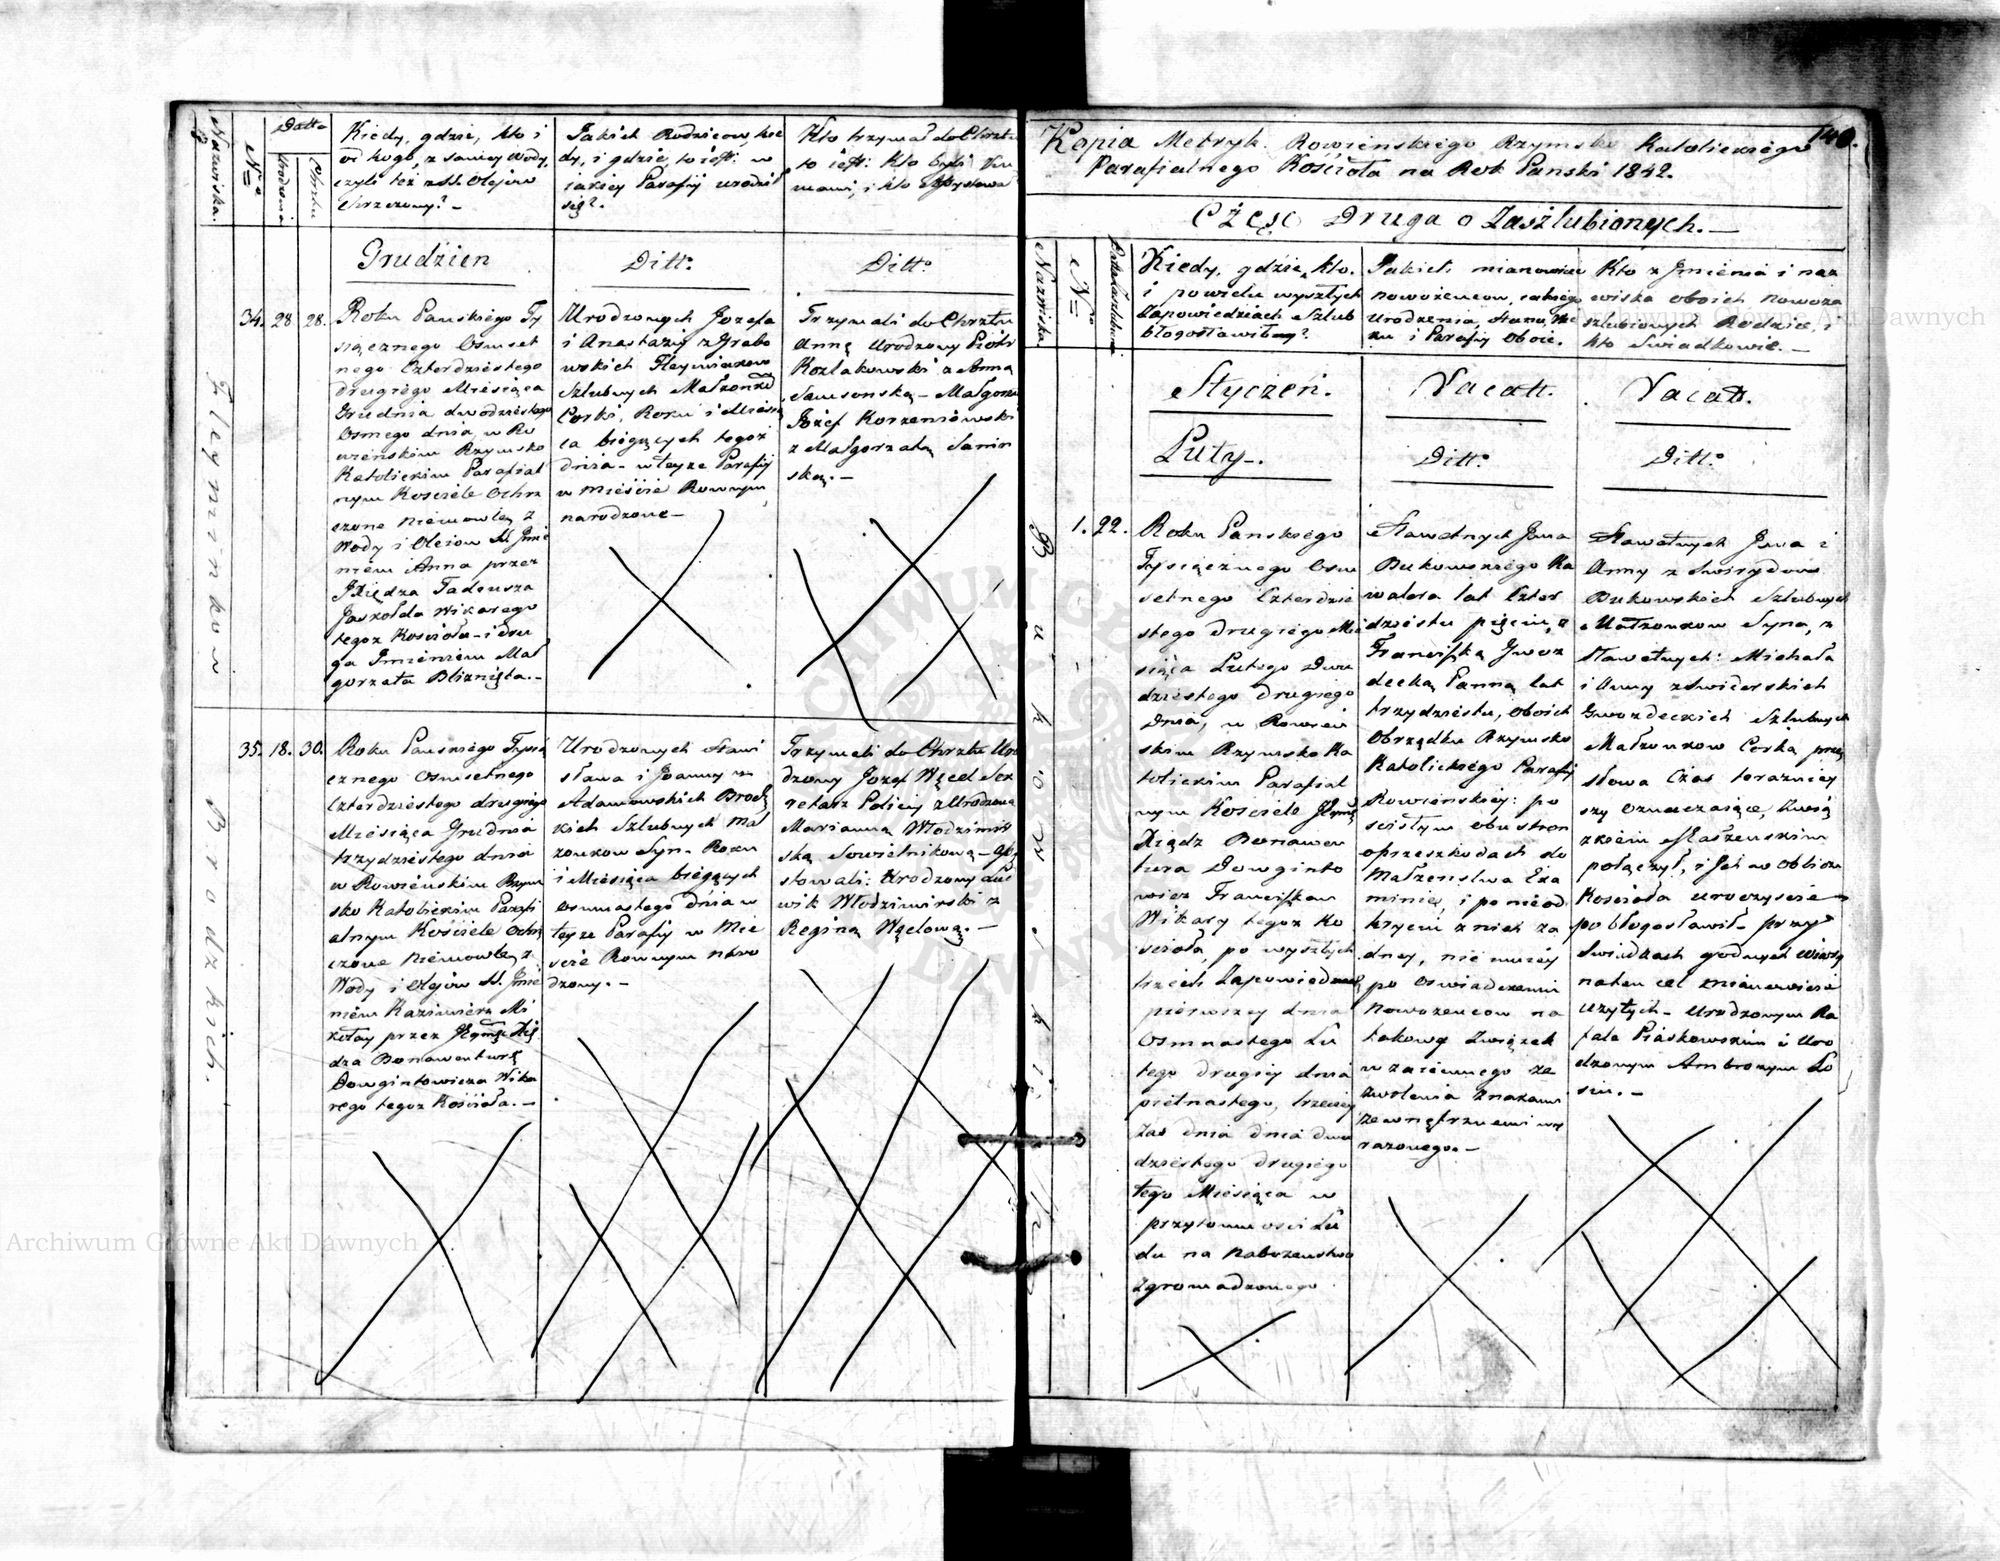 Nazwiska.
N=ro
Datto
Urodzenia
Chrztu
Kiedy, gdzie, kto i
od kogo, z samey Wody,
czyli też z SS. Olejów
Chrzczony? –
Jakich Rodziców, kie
dy, i gdzie, to iest: w
iakiey Parafij urodził
się?.
Kto trzymał do Chrztu
to iest: kto byli Ku
mami, i kto Assystował
Grudzień
Ditto.
Ditto.
34. 28 28.
Roku Pańskiego Ty
siącznego Osmset
nego Czterdziestego
drugiego Miesiąca
Grudnia dwódziestego
Osmego dnia, w Ro
wieńskim Rzymsko
Katolickim Parafial
nym Kościele Ochrz
czone Niemowlę z
Wody i Olejow SS. Jmie
niem Anna przez
Xiędza Tadeusza
Jaxołda Wikarego
tegoż Kościoła – i dru
ga Jmieniem Mał
gorzata Bliznięta. –
Urodzonych Jozefa
i Anastazij z Grabo
wskich
Szlubnych Małżonkó
Corki, Roku i Miesią
ca biegących tegoż
dnia – w teyże Parafij
w Mieście Rownym
narodzone –
Trzymali do Chrztu
Annę Urodzony Piotr
Kozłakowski z Anną
Samsonską – Małgorza
Józef Korzeniowski
z Małgorzatą Sanin
ską. –
35. 18. 30.
Roku Pańskiego Tysią
cznego Osmsetnego
Czterdziestego drugiego
Miesiąca Grudnia
trzydziestego dnia
w Rowieńskim Rzym
sko Katolickim Parafi
alnym Kościele Ochrz
czone Niemowlę z
Wody i Olejów SS. Jmie
niem Kazimierz Mi
kołay przez Xię
dza Bonawenturę
Dowgintowicza Wika
rego tegoż Kościoła. –
Urodzonych Stani
sława i Joanny z
Adamowskich Brodz
kich Szlubnych Mał
żonkow Syn – Roku
i Miesiąca biegących
osmnastego dnia w
teyże Parafij w Mie
ście Rownym naro
dzony. –
Trzymali do Chrztu Uro
dzony Jozef Węcel Sek
retarz Policij z Urodzoną
Marianną Włodzimir
ską Sowietnikową – Assy
stowali: Urodzony Lud
wik Włodzimirski z
Reginą Węclową. –
Brodzkich.
140.
Kopia Metryk. Rowieńskiego Rzymsko Katolickiego
Parafialnego Kościoła na Rok Pański 1842.
Część Druga o Zaszlubionych. –
Nazwiska.
N=ro
Kiedy, gdzie, kto.
i powielu wyszłych
Zapowiedziach Szlub
błogosławiłbny?
Jakich mianowicie
nowożencow, iakiego
Urodzenia, Stanu, Wie
ku i Parafij oboie.
Kto z Jmienia i naz
wiska oboich nowoza
szlubionych Rodzice, i
kto Swiadkowie. –
Styczeń.
Vacatt.
Vacatt.
Luty –.
Ditto.
Ditto.
Bukowskich
1. 22.
Roku Pańskiego
Tysiącznego Osm
setnego Czterdzie
stego drugiego Mie
siąca Lutego Dwu
dziestego drugiego
Dnia, w Rowień
skim Rzymsko Ka
tolickim Parafial
nym Kościele
Xiądz Bonawen
tura Dowginto
wicz Franciszkan
Wikary tegoż Ko
ścioła, po wyszłych
trzech Zapowiedziach
pierwszey dnia
Osmnastego Lu
tego drugiey dnia
pietnastego, trzeciey
Zaś dnia dnia dwu
dziestego drugiego
tego Miesiąca w
przytomnosci Lu
du na Nabożeństwo
zgromadzonego
Sławetnych Jana
Bukowskiego Ka
walera lat Czter
dziestu pięciu, z
Franciszką Gwoz
decką Panną lat
trzydziestu, oboich
Obrządku Rzymsko
Katolickiego Parafij
Rowieńskiey: po
scisłym obustron
o przeszkodach do
Małżenstwa Exa
minie, i po nieod
kryciu z nich za
dney, nie mniey
po oswiadczeniu
Nowożencow na
takowy Związek
wzaiemnego ze
zwolenia znakami
zewnętrznemi wy
rażonego. –
Sławetnych Jana i
Anny z Swirydow
Bukowskich Szlubnych
Małżonkow Syna, z
Sławetnych: Michała
i Anny z Swiderskich
Gwozdeckich Szlubnych
Małżonkow Corką przez
słowa Czas teraźniey
szy oznaczaiące, Zwią
zkiem Małżeńskim
połączył, i Jch w obliczu
Kościoła uroczyscie
pobłogosławił – przy
Swiadkach godnych Wiary
na ten cel zmianowicie
użytych – Urodzonym Ra
fale Piaskowskim i Uro
dzonym Ambrozym Ło
sin. –
Archiwum Główne Akt Dawnych
Archiwum Główne Akt Dawnych